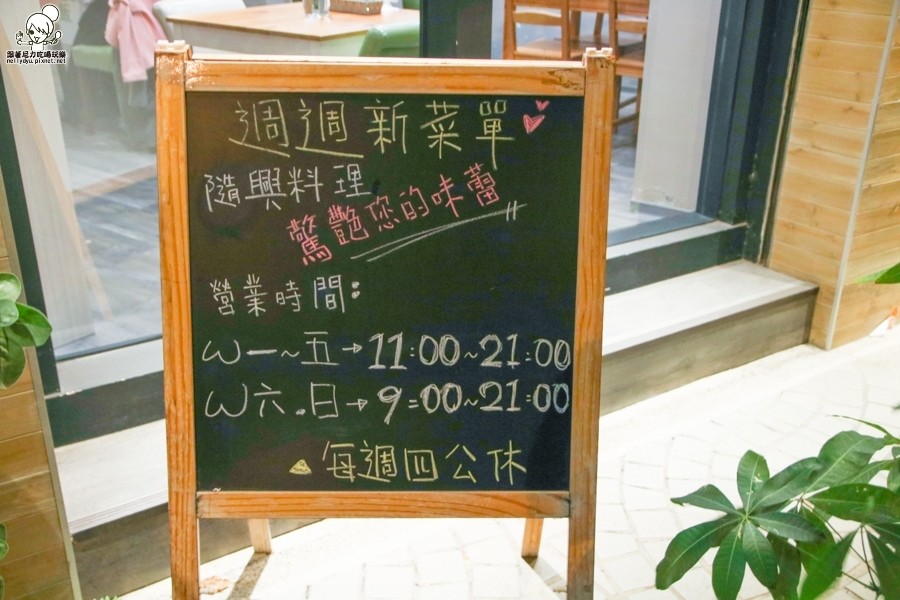 跟著尼力吃喝玩樂
nellydyu.pixnet.net
週週新菜單
隨興料理
驚艷您的味蕾
營業時間:
W一~五→11:00~21:00
W六.日→9:00~21:00
每週四公休